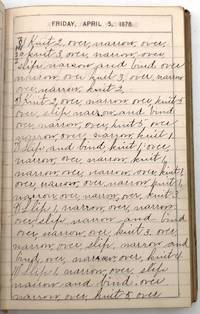 FRIDAY, APRIL 5, 1878.
3) Knit 2, over, narrow, over,
knit 3, over, narrow, over
slip, narrow and bind over
narrow, over, knit 3, over, narrow
over, narrow, knit 2.
knit 2, over, narrow, over, knit 5
over, slip narrow, and bind
over, narrow, over, knit 5, over
narrow, over, narrow, knit 1
Slip and bind, knit 1, over
narrow, over, narrow, knit 1
narrow, over, narrow, over, knit 1
over, narrow, over, narrow, knit 1,
narrow, over, narrow, over, knit 1
Slip 1, narrow, over, narrow
over, slip, narrow and bind
over, narrow, over, knit 3, over
narrow, over, slip, narrow and
bind, over, narrow over, knit 4
Slip 1, narrow, over, slip
narrow and bind, over
narrow, over, knit 5, over